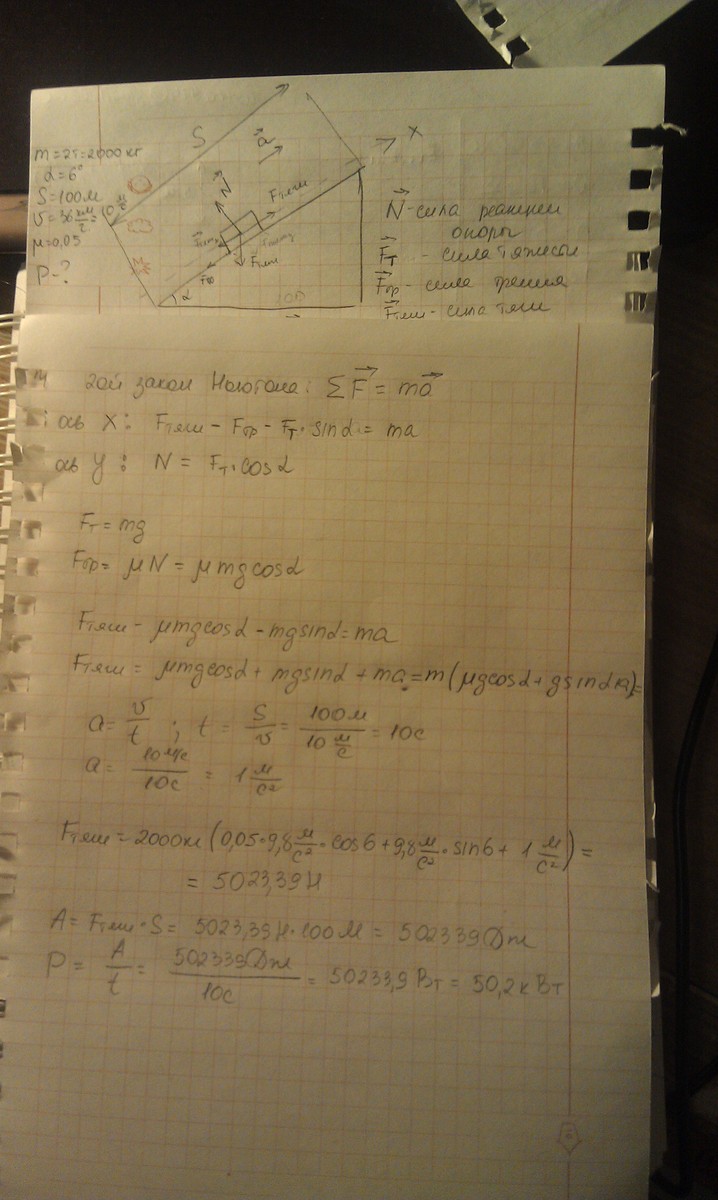 m=2т=2000кг
α=6°
S=100м
v=36 км/ч=10 м/с
μ=0,05
P-?
S
a⃗
x
N⃗
Fтяги
Fтяж
Fтр
α
N⃗-сила реакции
опоры
F⃗т - сила тяжести
F⃗тр - сила трения
F⃗тяги - сила тяги
2ой закон Ньютона: ∑F⃗ = ma⃗
ось X: Fтяги - Fтр - Fт·sinα = ma
ось y: N = Fт·cosα
Fт = mg
Fтр = μN = μmgcosα
Fтяги - μmgcosα - mgsinα = ma
Fтяги = μmgcosα + mgsinα + ma = m(μgcosα + gsinα+a)=
a = v/t ; t = S/v = 100м/10 м/с = 10с
a = 10м/с/10с = 1 м/с²
Fтяги = 2000кг (0,05·9,8 м/с²·cos6 + 9,8 м/с²·sin6 + 1 м/с²) =
= 5023,39 Н
A = Fтяги·S = 5023,39Н·100м = 502339 Дж
P = A/t = 502339Дж/10с = 50233,9 Вт = 50,2 кВт